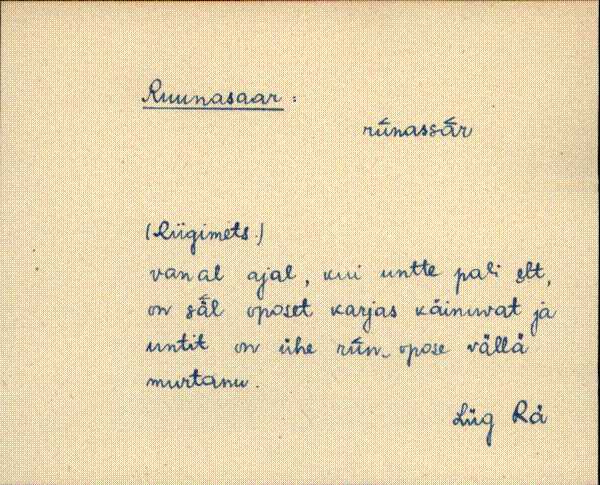 Ruunasaar :
rūnassār
(Riigimets.)
vanal ajal, kui untte pali elt,
on sǟl oposet karjas käinuvat ja
untit on ühe rūn_opose vällä
murtanu.
Lüg Rä